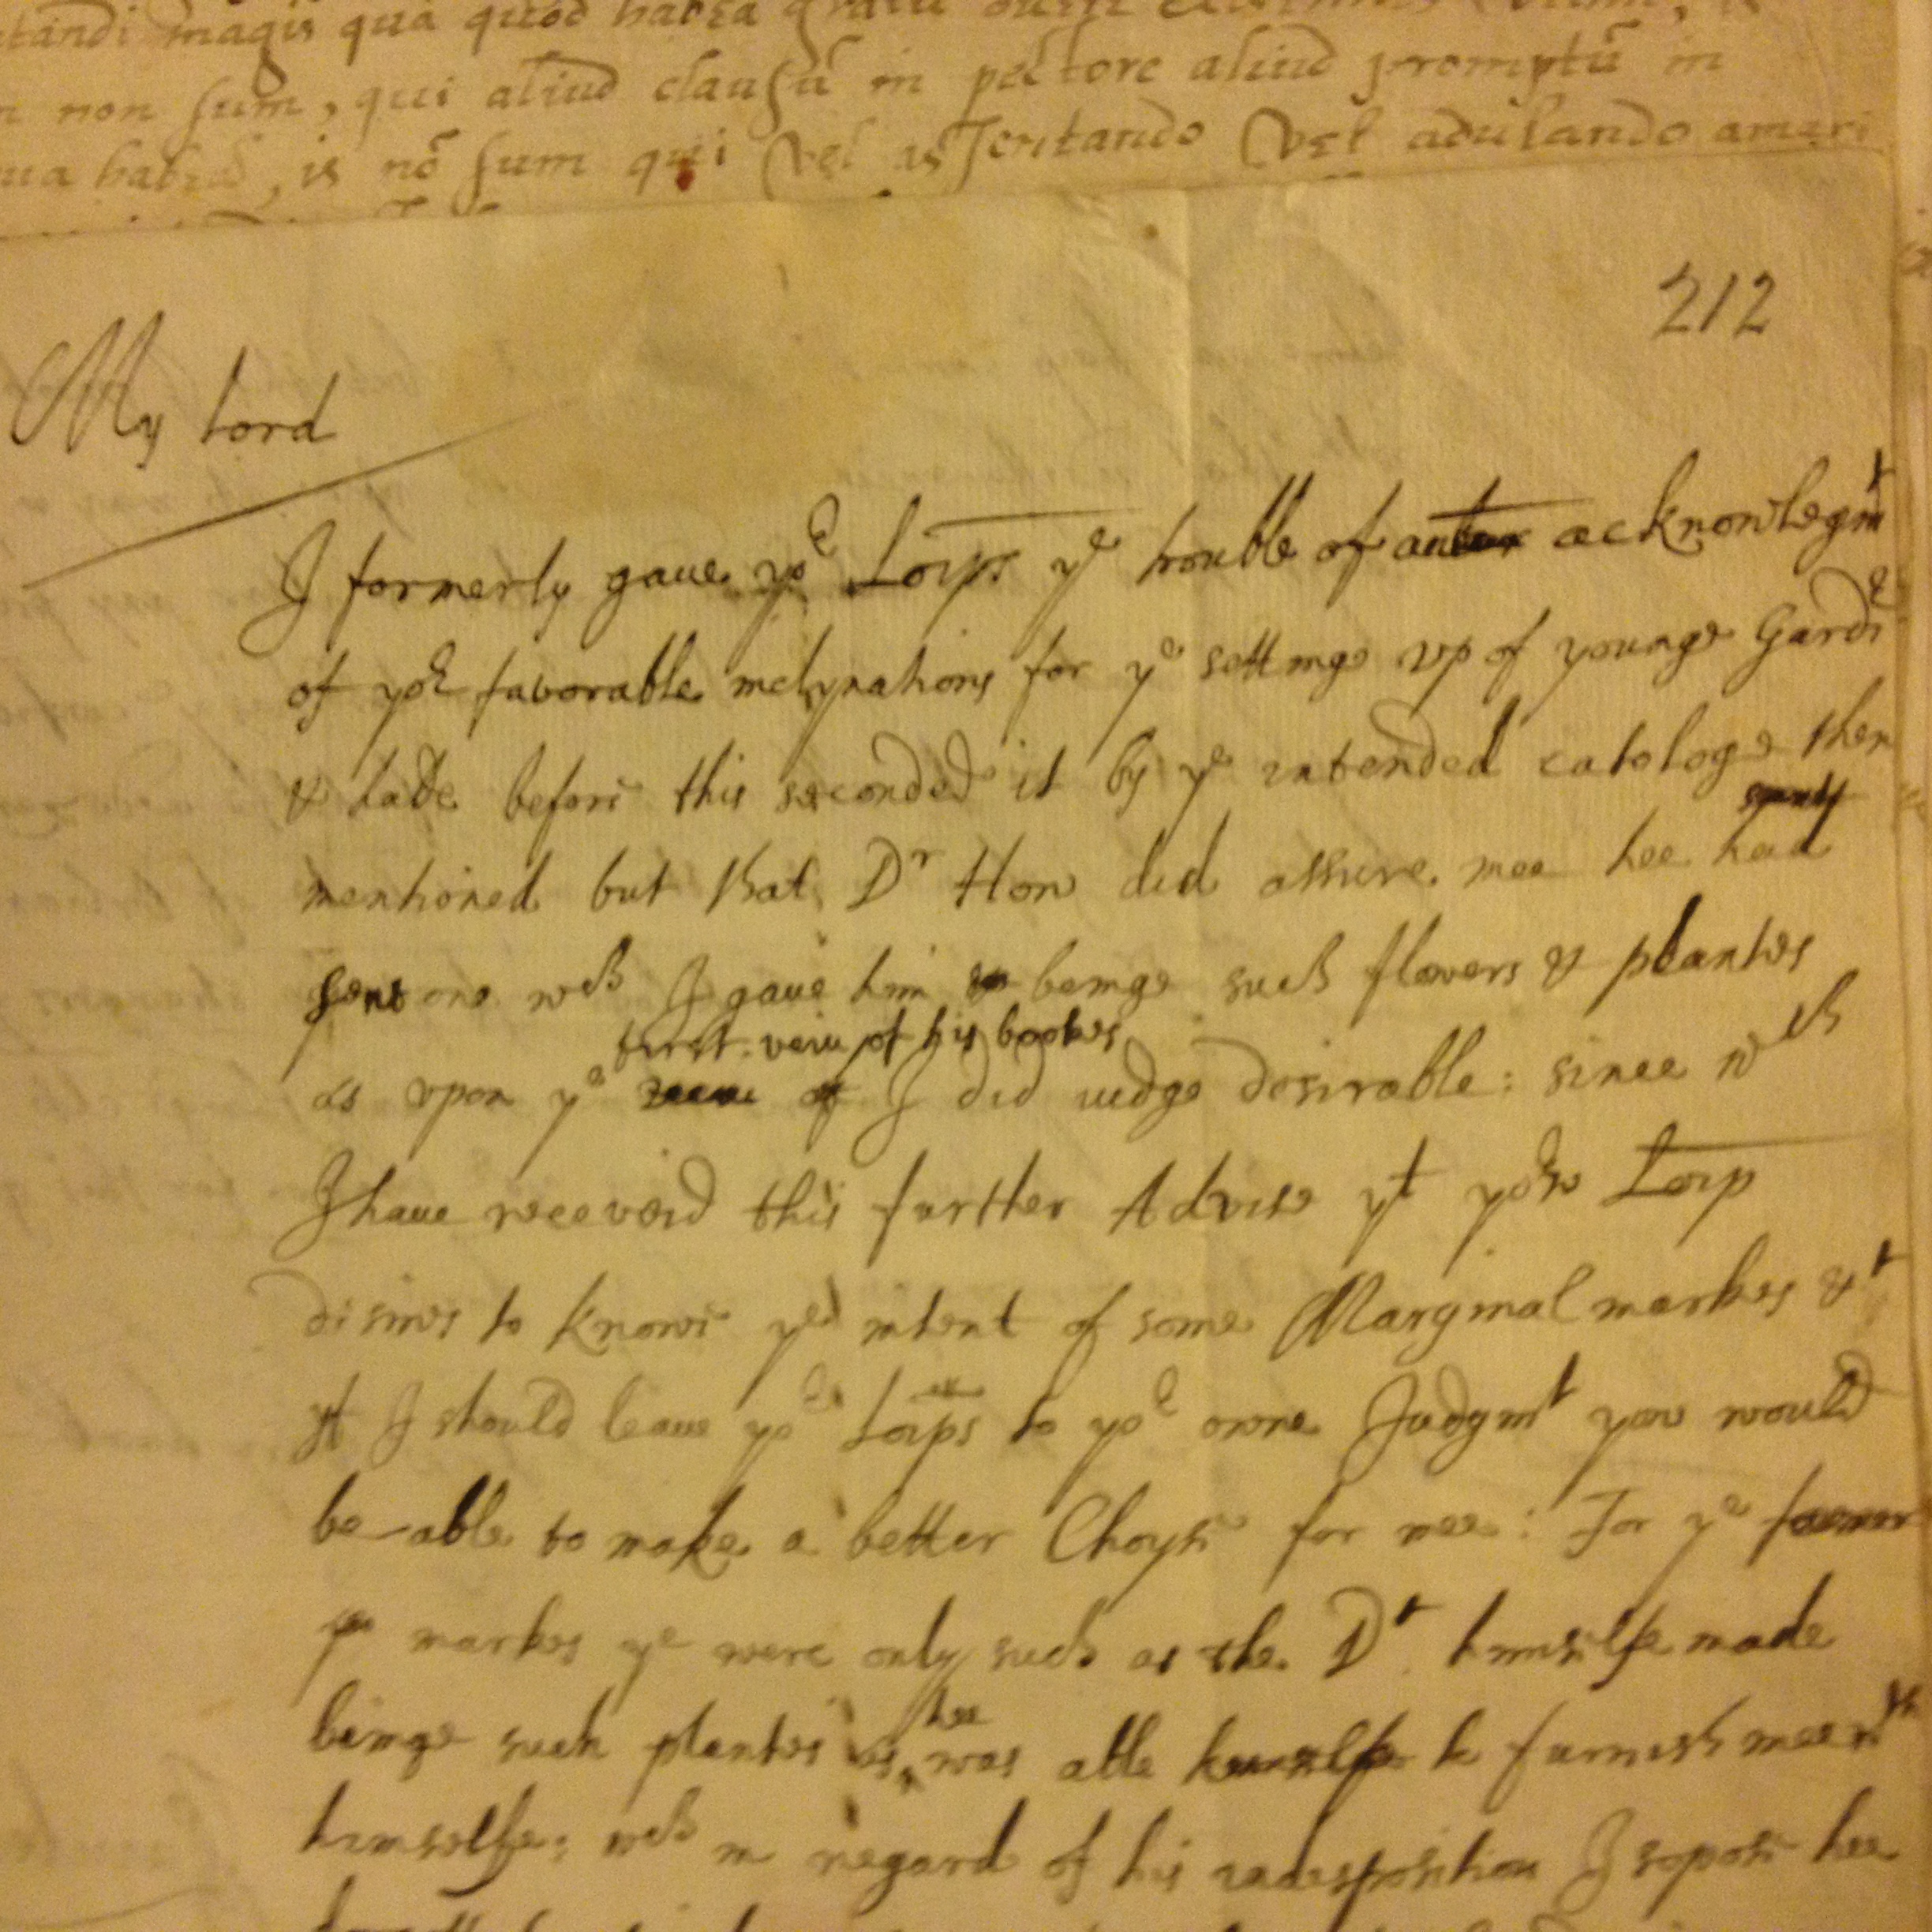 non sum, qui aliud clausū in pectore aliud promptū in
is nō sum qui vel assentando vel adulando
212
My Lord
I formerly gaue yor Lorps ye trouble of acknowlegmt
of yor favorable inclynations for ye settinge vp of younge Gardr
& hade before this seconded it by ye intended cataloge then
mentioned but that Dr How did assure mee hee had
sent one wch I gaue him beinge such flowers & plantes
first veiu of his bookes
as vpon ye of I did iudge desirable: since wch
I haue receverd this further Advise yt yor Lorp
disires to knowe ye intent of some Marginal markes &
yt I should leaue yor Lorps to yor owne Judgmt you would
be able to make a better Choyse for mee: For ye former
markes ye were only such as the Dr himselfe made
hee
beinge such plantes as was able himselfe to furnish mee wth
himselfe: wch in regard of his indesposition I sopose hee